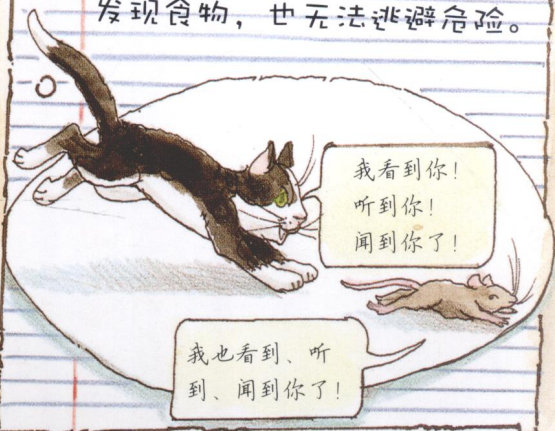 发现食物，也无法逃避危险。
我看到你！
听到你！
闻到你了！
我也看到、听
到、闻到你了！